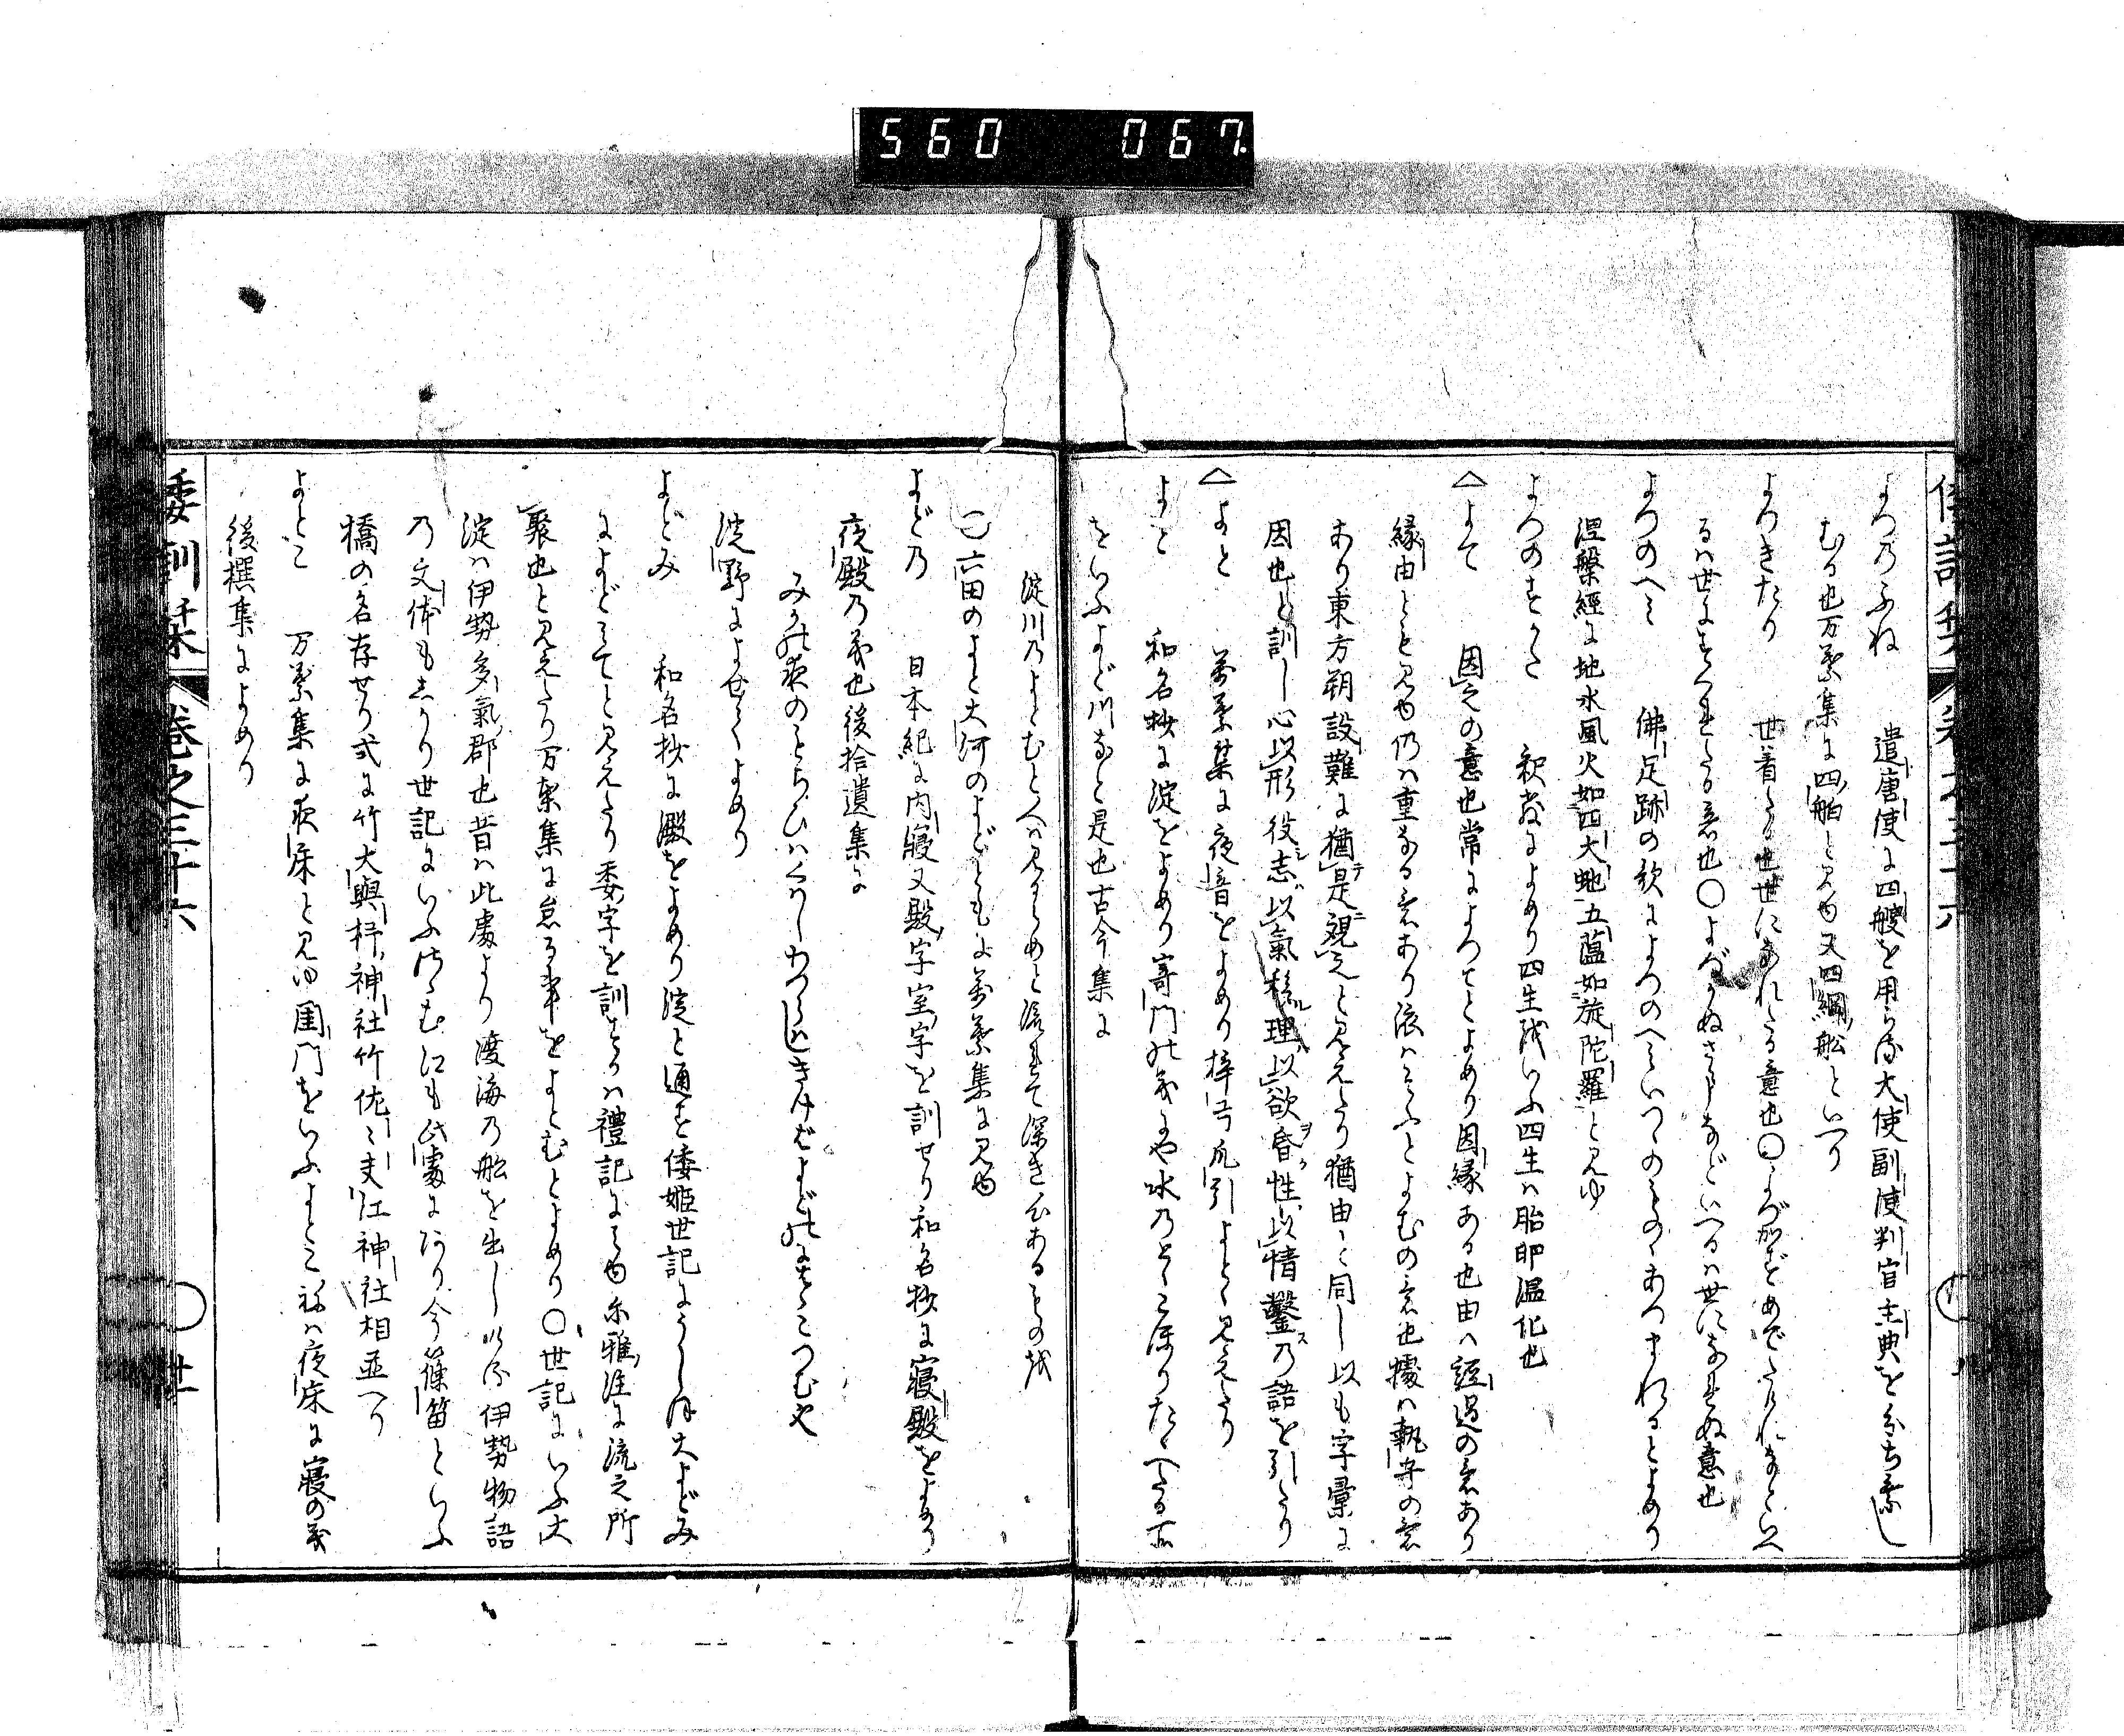 560 067
よつのふね 遣唐使に四艘を用らる大使副使判官主典を分ち乗し
むる也万葉集に四舶と見ゆ又四綱舩といへり
よつきたり 世着たる也世になれたる意也○よづかずめでたけれなといへ
るは世にすくれたる意也○よづかぬさまなどいへるは世になれぬ意也
よつのへミ 佛足跡の歌によつのへミいつゝのものゝあつまれるとよめり
涅槃經に地水風火如四大虵五蘊如旋陀羅と見ゆ
よつのすかた 釈教によめり四生をいふ四生は胎卵温化也
△よて 因之の意也常によつてとよめり因縁ある也由は經過の意あり
縁由ともと見ゆ仍は重なる意あり依はそふとよむの意也據は執守の意
あり東方朔設難に猶是観之と見えたり猶由ト同し以も字彙に
因也と訓し心以形役志以氣移理以欲昏性以情鑿乃語を引たり
△よと 萬葉集に夜音をよめり梓弓爪引よとゝ見えたり
よと 和名抄に淀をよめり寄門の義にや水のとゝこほりたゝへたる所
をいふよど川など是也古今集に
淀川のよとむと人は見るらめと流れて深き心あるものを
○六田のよと大河のよどともに萬葉集に見ゆ
よどの 日本紀に内寝又殿字室字を訓せり和名抄に寝殿をよめり
夜殿の義也後拾遺集に
淀野によせてよめり
よどみ 和名抄に澱をよめり淀と通す倭姫世記にうしほ大よどみ
によどミてと見えたり委字を訓するは禮記にミゆ尓雅注に流之所
聚也と見えたり万葉集に怠る事をよとむとよめり○世記にいふ大
淀は伊勢多氣郡也昔は此處より渡海の舩を出し此る伊勢物語
の文体もしかり世記にいふ
橋の名存せり式に竹大與杼神社竹佐々夫江神社相並へり
よとこ 万葉集に夜床と見ゆ閨門をいふよとこねは夜床に寝の義
後撰集によめり
倭訓栞 巻之三十六 ○ 廿